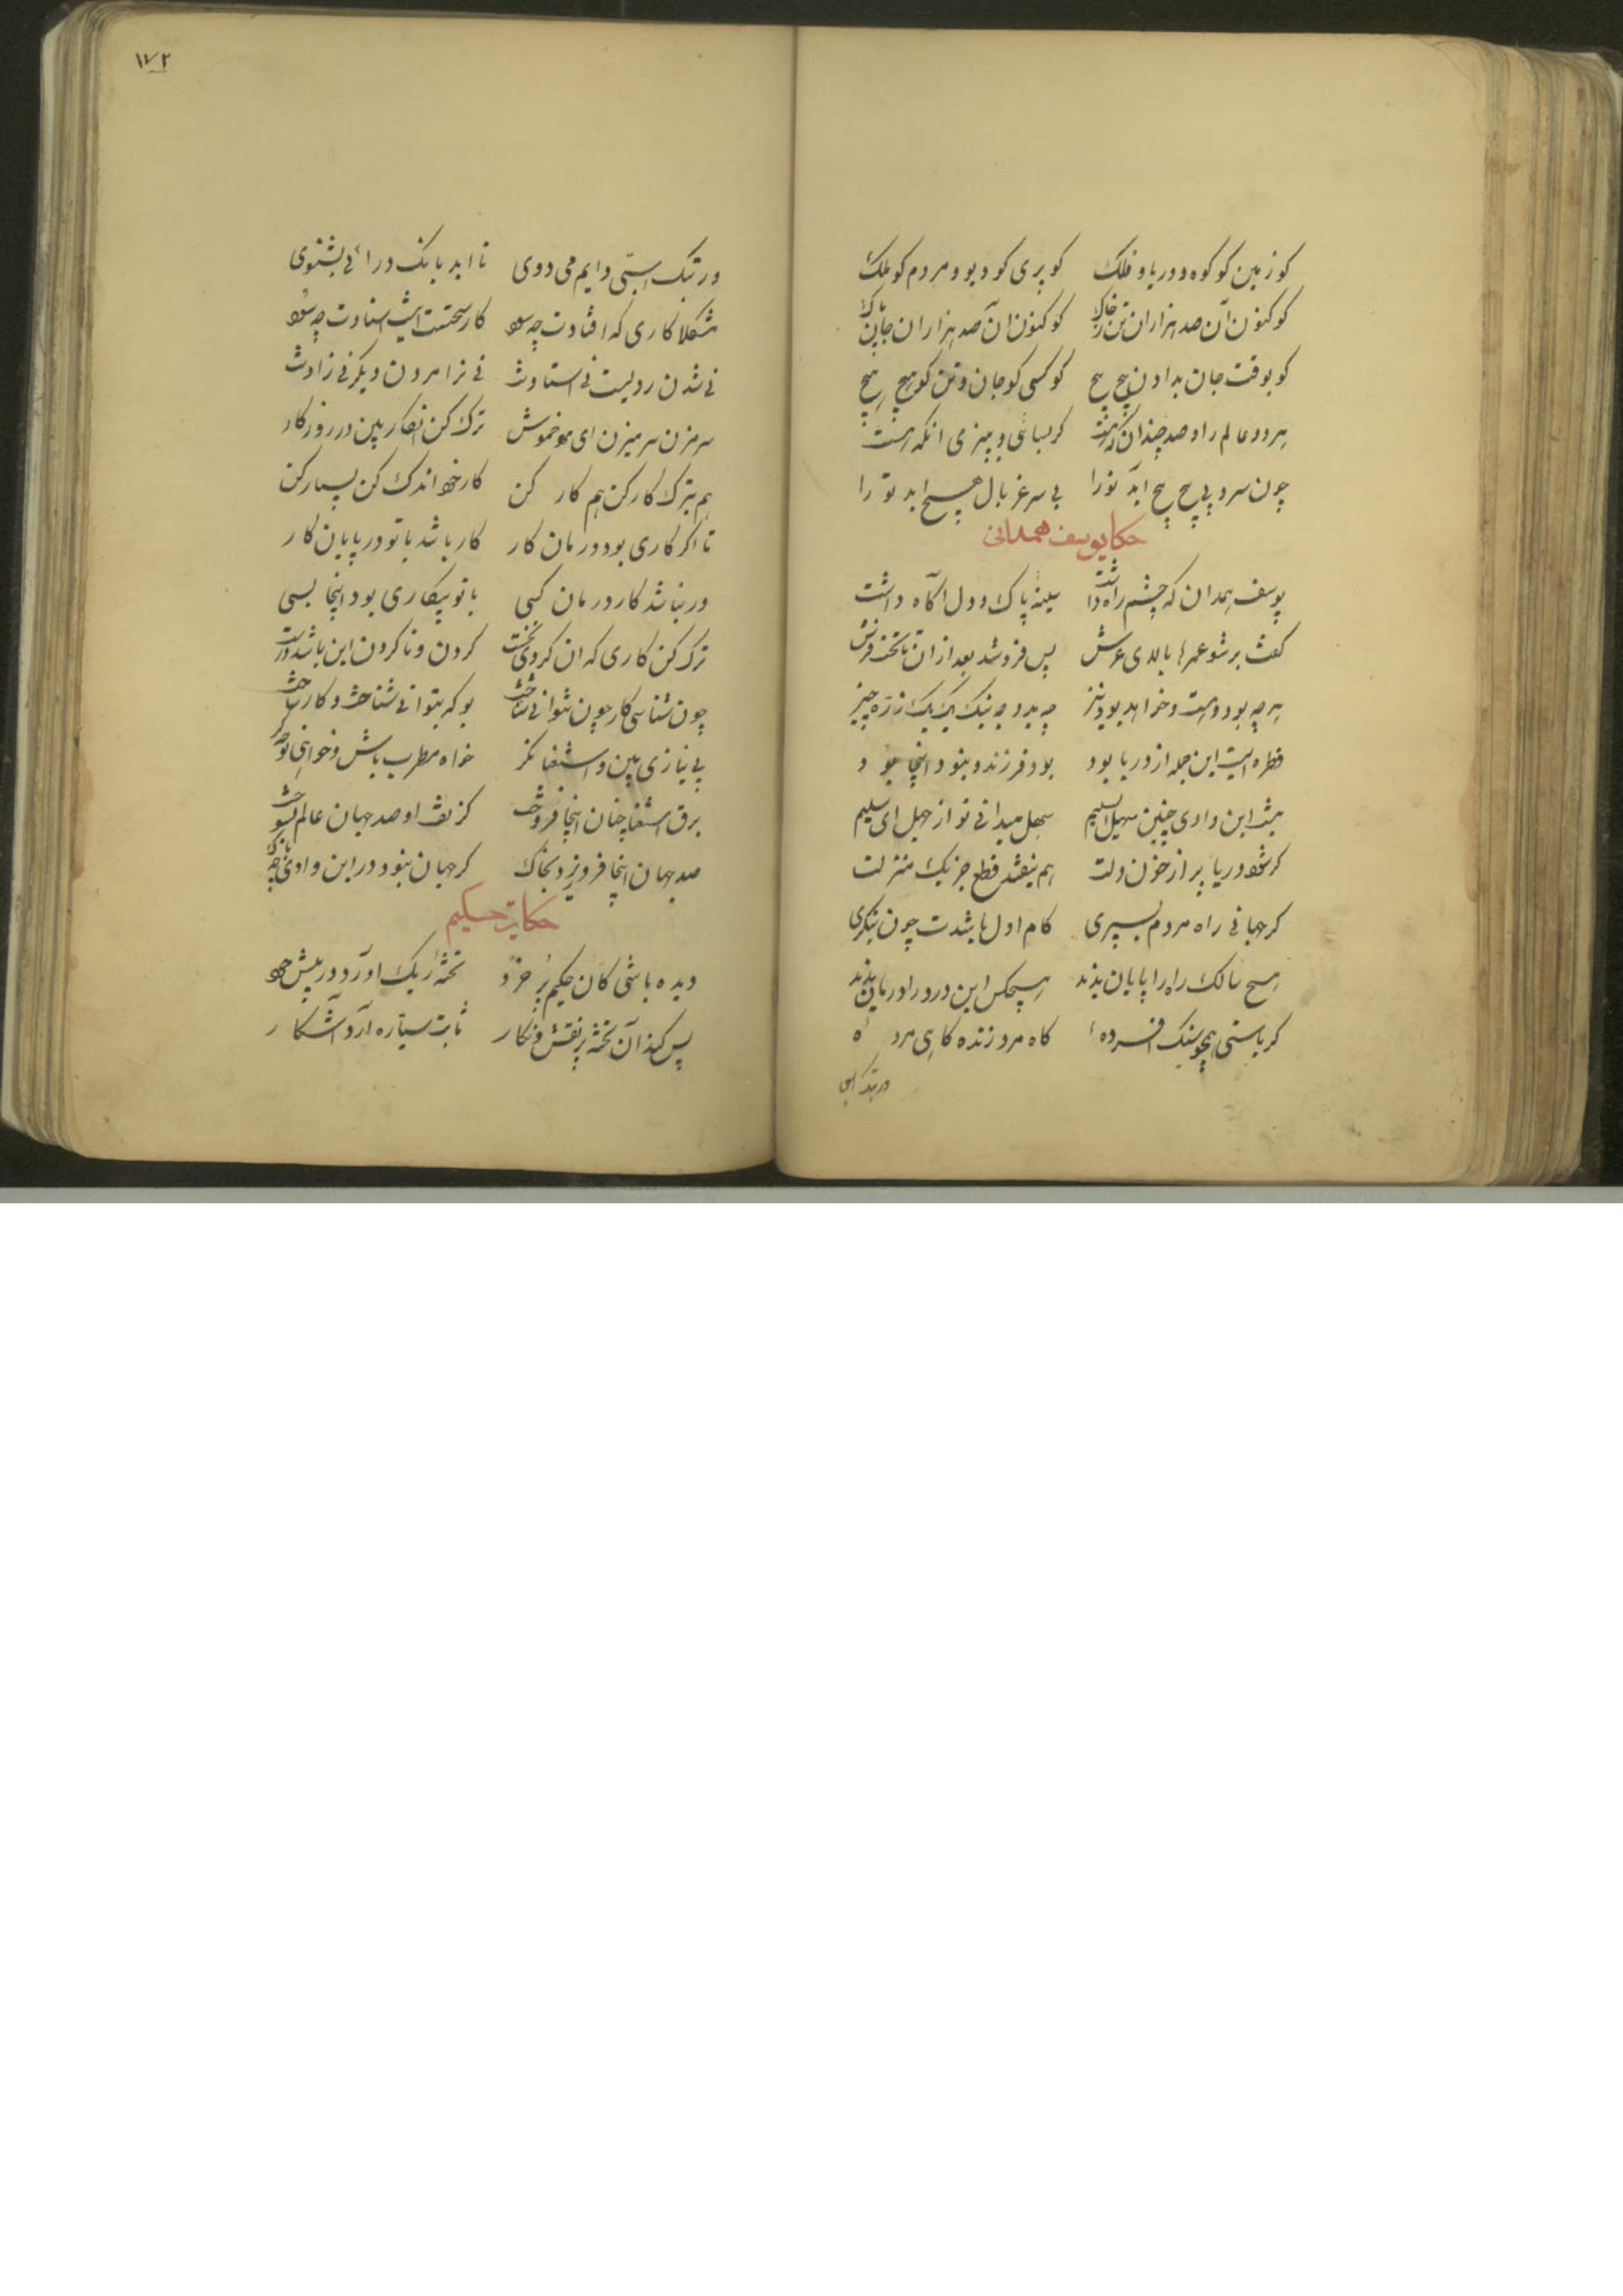 کو زمین کو کوه و دریا و فلک کو پری کو دیو و مردم کو ملک
کو کنون آن صد هزاران تن ز خاک کو کنون ان صد هزاران جان پاک
کو بوقت جان بدادن پیچ پیچ کو کسی کو جان و تن کو هیچ هیچ
هر دو عالم را و صد چندان که هست کر بسائی و ببیزی انکه هست
چون سرو پی پیچ پیچ آید تو را بی سر غربال هیچ اید تو را
حکا یوسف همدانی
یوسف همدان که چشم راه داشت سینهٔ پاک و دل آگاه داشت
کفت بر شو عمرها بالای عرش پس فرو شد بعد از ان تا تخت فرش
هر چه بود و هست و خواهد بود نیز چه بد و چه نیک یک یک ذرّه چیز
قطره است این جمله از دریا بود بود فرزند و نبود اینجا بود
نیست این وادی چنین سهل ای سلیم سهل میدانی تو از جهل ای سلیم
کر شود دریا پر از خون دلت هم نیفتد قطع جز یک منزلت
کر جهانی راه مردم بسپری کام اول باشدت چون بنکری
هیچ سالک راه را پایان ندید هیچکس این درد را درمان ندید
کر باستی همچو سنک افسردهٔ کاه مرد زنده کاهی مردهٔ
در تک استی
١٧٢
ور تبک استی و دایم می دوی تا ابد بانک درائی نشنوی
مشکلا کاری که افتادت چه سود کار سختست ایست استادت چه سود
نی شدن رویست نی استادنت نی ترا مردن دیکر نی زادنت
سر مزن سر میزن ای مرد خموش ترک کن این کار بین در روزکار
هم بترک کار کن هم کار کن کار خود اندک کن بسیار کن
تا اکر کاری بود درمان کار کار باشد با تو در پایان کار
ور نباشد کار درمان کسی با تو بیکاری بود اینجا بسی
ترک کن کاری که ان کردی نخست کردن و ناکردن این باشد درست
چون شناسی کار چون نتوانی شناخت بو که بتوانی شناخت و کار ساخت
بی نیازی بین و استغنا نکر خواه مطرب باش و خواهی نوحه کر
برق استغنا چنان اینجا فروخت کز تف او صد جهان عالم بسوخت
صد جهان اینجا فرو ریزد بخاک کر جهان نبود در این وادی چه باک
حکایت حکیم
دیده باشی کان حکیم پر خرد تختهٔ ریک اورد در پیش خود
پس کند آن تخته پر نقش و نکار ثابت سیّاره آرد آشکار